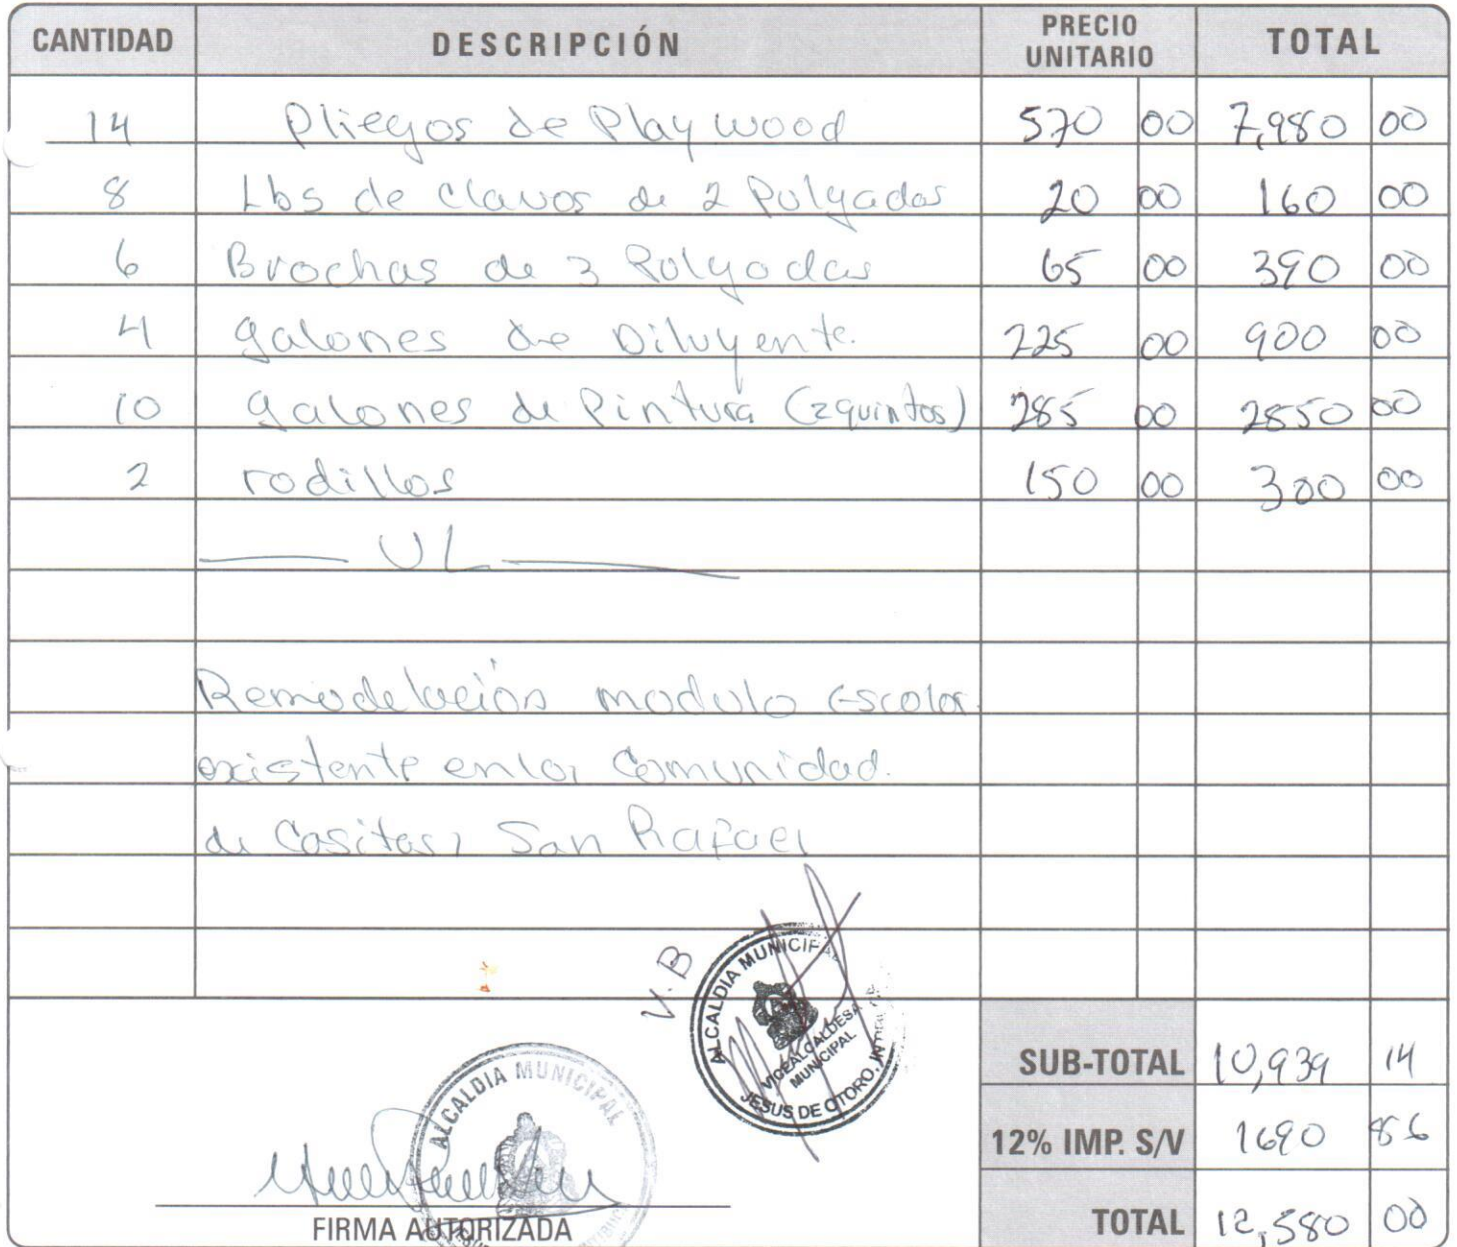 CANTIDAD DESCRIPCIÓN PRECIO UNITARIO TOTAL
14 Pliegos de Play wood 570 00 7,980 00
8 Lbs de Clavos de 2 Pulgadas 20 00 160 00
6 Brochas de 3 Pulgadas 65 00 390 00
4 galones de Diluyente. 225 00 900 00
10 galones de Pintura (2quintos) 285 00 2850 00
2 rodillos 150 00 300 00
UL
Remodelación modulo Escolar
existente en la Comunidad.
de Casitas, San Rafael
V.B
ALCALDIA MUNICIPAL
VICEALCALDESA
MUNICIPAL
JESUS DE OTORO,
SUB-TOTAL 10,939 14
ALCALDIA MUNICIPAL
12% IMP. S/V 1690 86
FIRMA AUTORIZADA
TOTAL 12,580 00